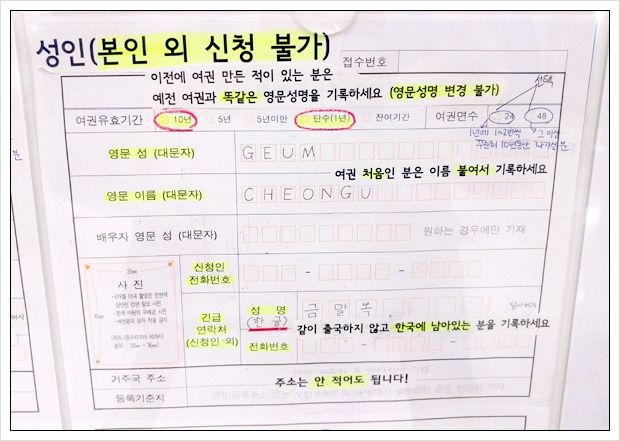 성인(본인 외 신청 불가)
접수번호
이전에 여권 만든 적이 있는 분은
예전 여권과 똑같은 영문성명을 기록하세요 (영문성명 변경 불가)
선택
여권유효기간 10년 5년 5년미만 단수(1년) 잔여기간 여권면수 24 48
1년에 1~2번씩
꾸준히 10년동안
그 이상
나가실 분
영문 성 (대문자) GEUM
여권 처음인 분은 이름 붙여서 기록하세요
영문 이름 (대문자) CHEONGU
배우자 영문 성 (대문자) 원하는 경우에만 기재
신청인
전화번호 - -
사 진
긴급
연락처
(신청인 외)
성 명
(한글)
금말복
같이 출국하지 않고 한국에 남아있는 분을 기록하세요
전화번호 - -
거주국 주소 주소는 안 적어도 됩니다!
등록기준지